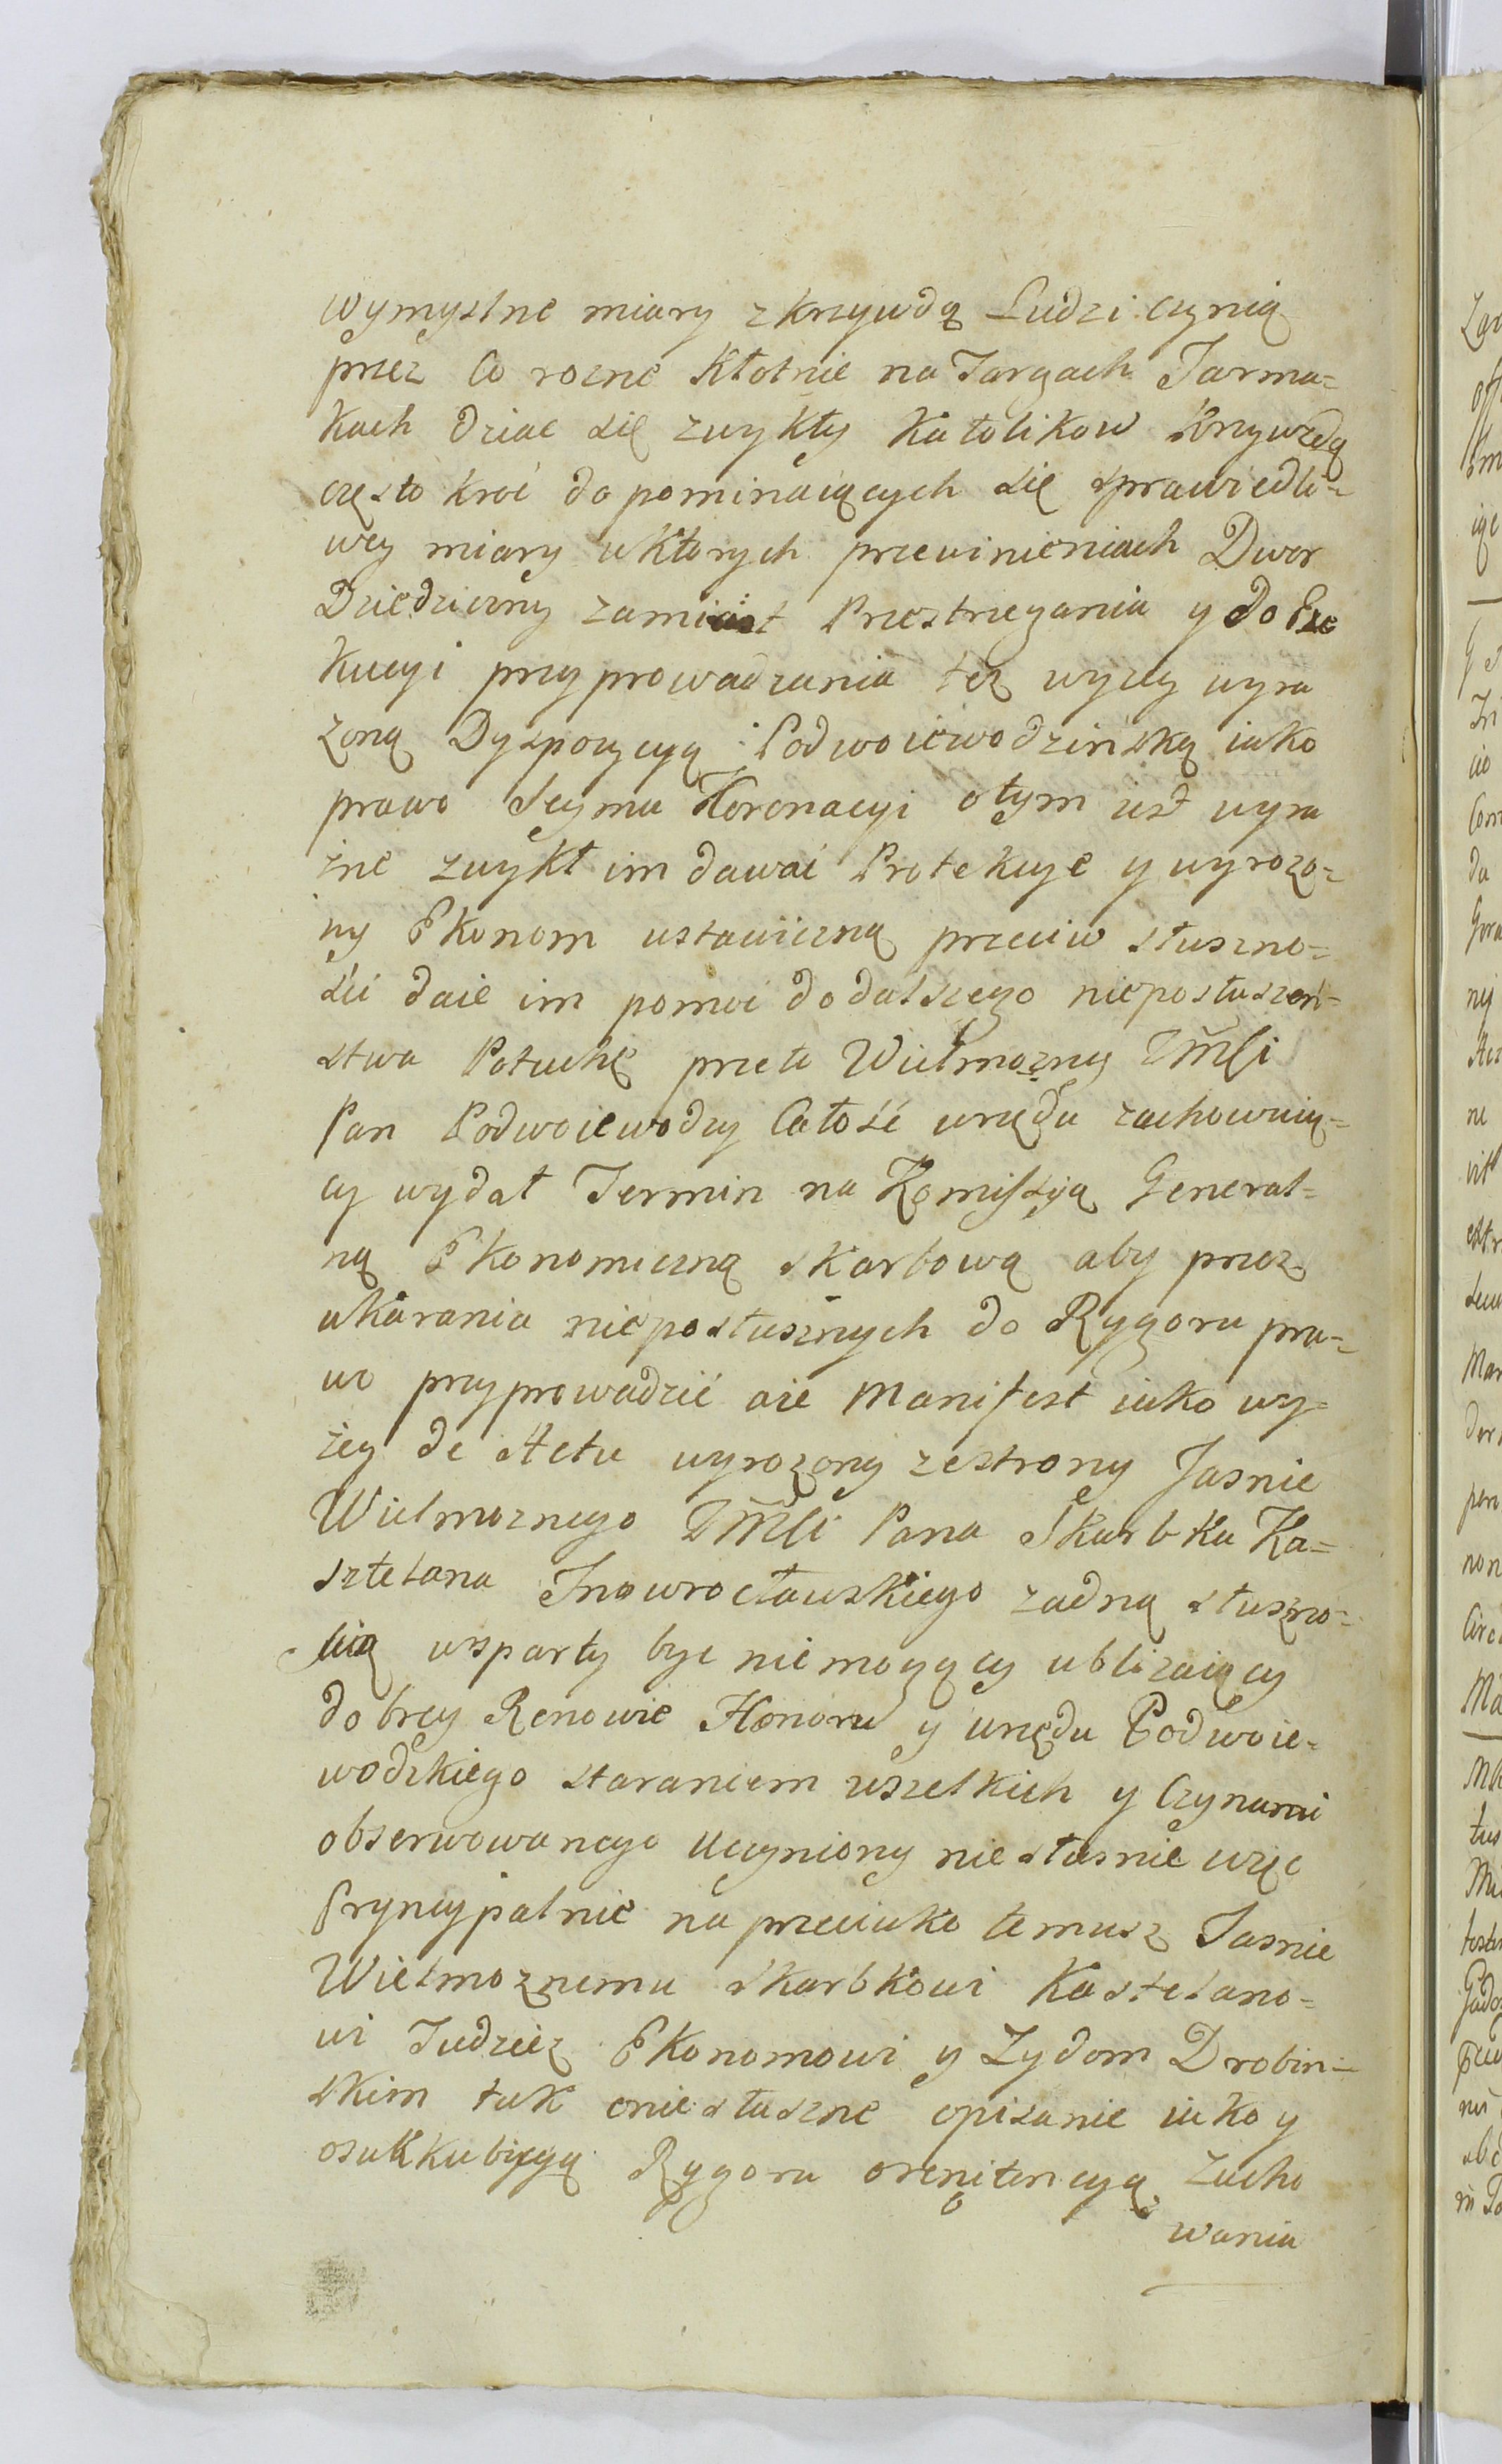 wymyslne miary z krzywdą Ludzi czynią
przez Co rozne Kłotnie na Targach Jarma=
kach dziac się zwykły Katolikow Krzywdą
często kroć dopominaiących się sprawiedli=
wey miary wktorych przewinieniach Dwor
Dziedziczny zamiast Przestrzegania y do Exe
kucyi przyprowadzania tez wyzey wyra
zoną Dyspozycyą Podwoiewodzińską iako
prawo Seymu Koronacyi otym iest wyra
źne zwykł im dawać Protekcye y wyrozo=
ny Ekonom ustawiczną przeciw słuszno=
ści daie im pomoc do dalszego nieposłuszeń=
stwa Potuchę przeto Wielmozny JMCi
Pan Podwoiewodzy Całość urzędu zachowuią=
cy wydał Termin na Komissyią General=
ną Ekonomiczną skarbową aby przez
ukarania nieposłusznych do Rygoru pra=
wo przyprowadzić aże Manifest iako wy=
żey de Actu wyrozony zestrony Jasnie
Wielmoznego JMCi Pana Skarbka Ka=
sztelana Jnowrocławskiego zadną słuszno=
scią wsparty byc niemogący ubliżaiący
dobrey Renowie Honoru y urzędu Podwoie=
wodzkiego staraniem wszelkich y Czynami
obserwowanego Uczyniony niesłusnie więc
Pryncypalnie na przeciwko temusz Jasnie
Wielmoznemu Skarbkowi Kastelano=
wi Tudziez Ekonomowi y Zydom Drobin=
skim tak oniesłuszne opisanie iako y
Rygoru orenitencyą Zacho
wania